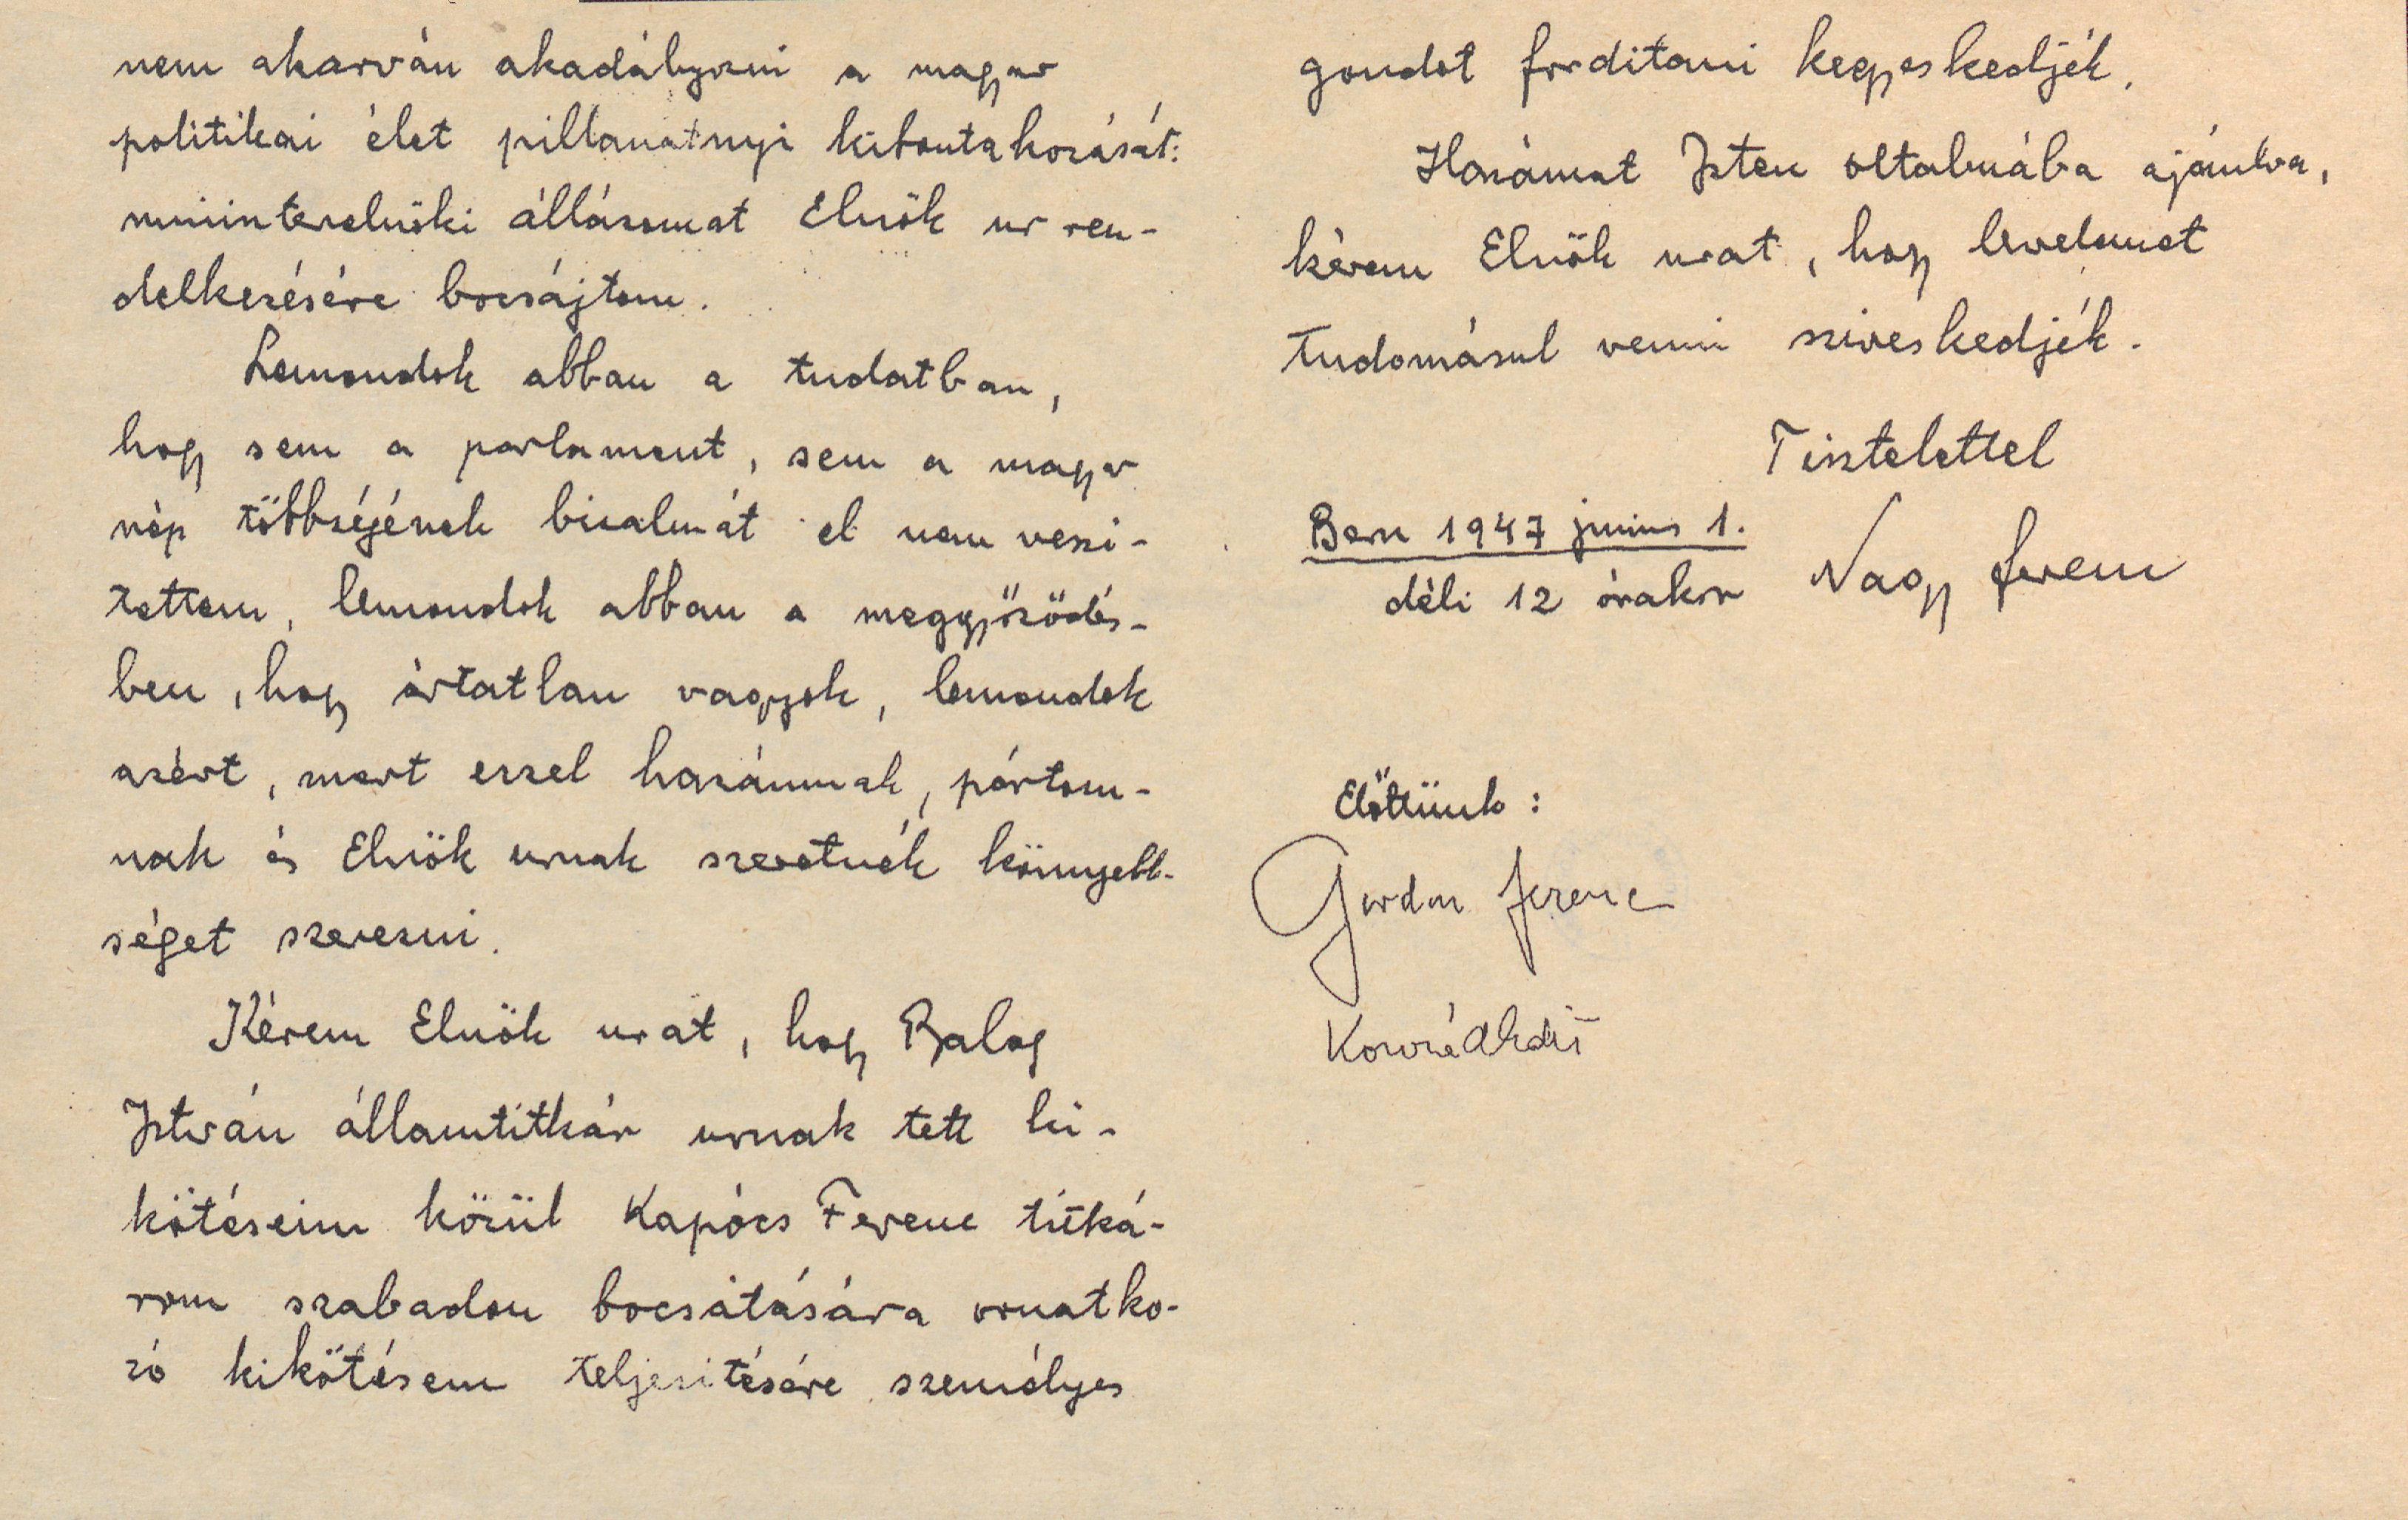 nem akarván akadályozni a magyar
politikai élet pillanatnyi kibontakozását:
miniszterelnöki állásomat Elnök ur ren-
delkezésére bocsájtom.
Lemondok abban a tudatban,
hogy sem a parlament, sem a magyar
nép többségének bizalmát el nem veszi-
tettem, lemondok abban a meggyőződés-
ben, hogy ártatlan vagyok, lemondok
azért, mert ezzel hazámnak, pártom-
nak és Elnök urnak szeretnék könnyebb-
séget szerezni.
Kérem Elnök urat, hogy Balog
István államtitkár urnak tett ki-
kötéseim közül Kapócs Ferenc titká-
rom szabadon bocsátására vonatko-
zó kikötésem teljesitésére személyes
gondot forditani kegyeskedjék.
Hazámat Isten oltalmába ajánlva,
kérem Elnök urat, hogy levelemet
tudomásul venni sziveskedjék.
Tisztelettel
Bern 1947 junius 1.
déli 12 órakor
Nagy Ferenc
Előttünk:
Gordon Ferenc